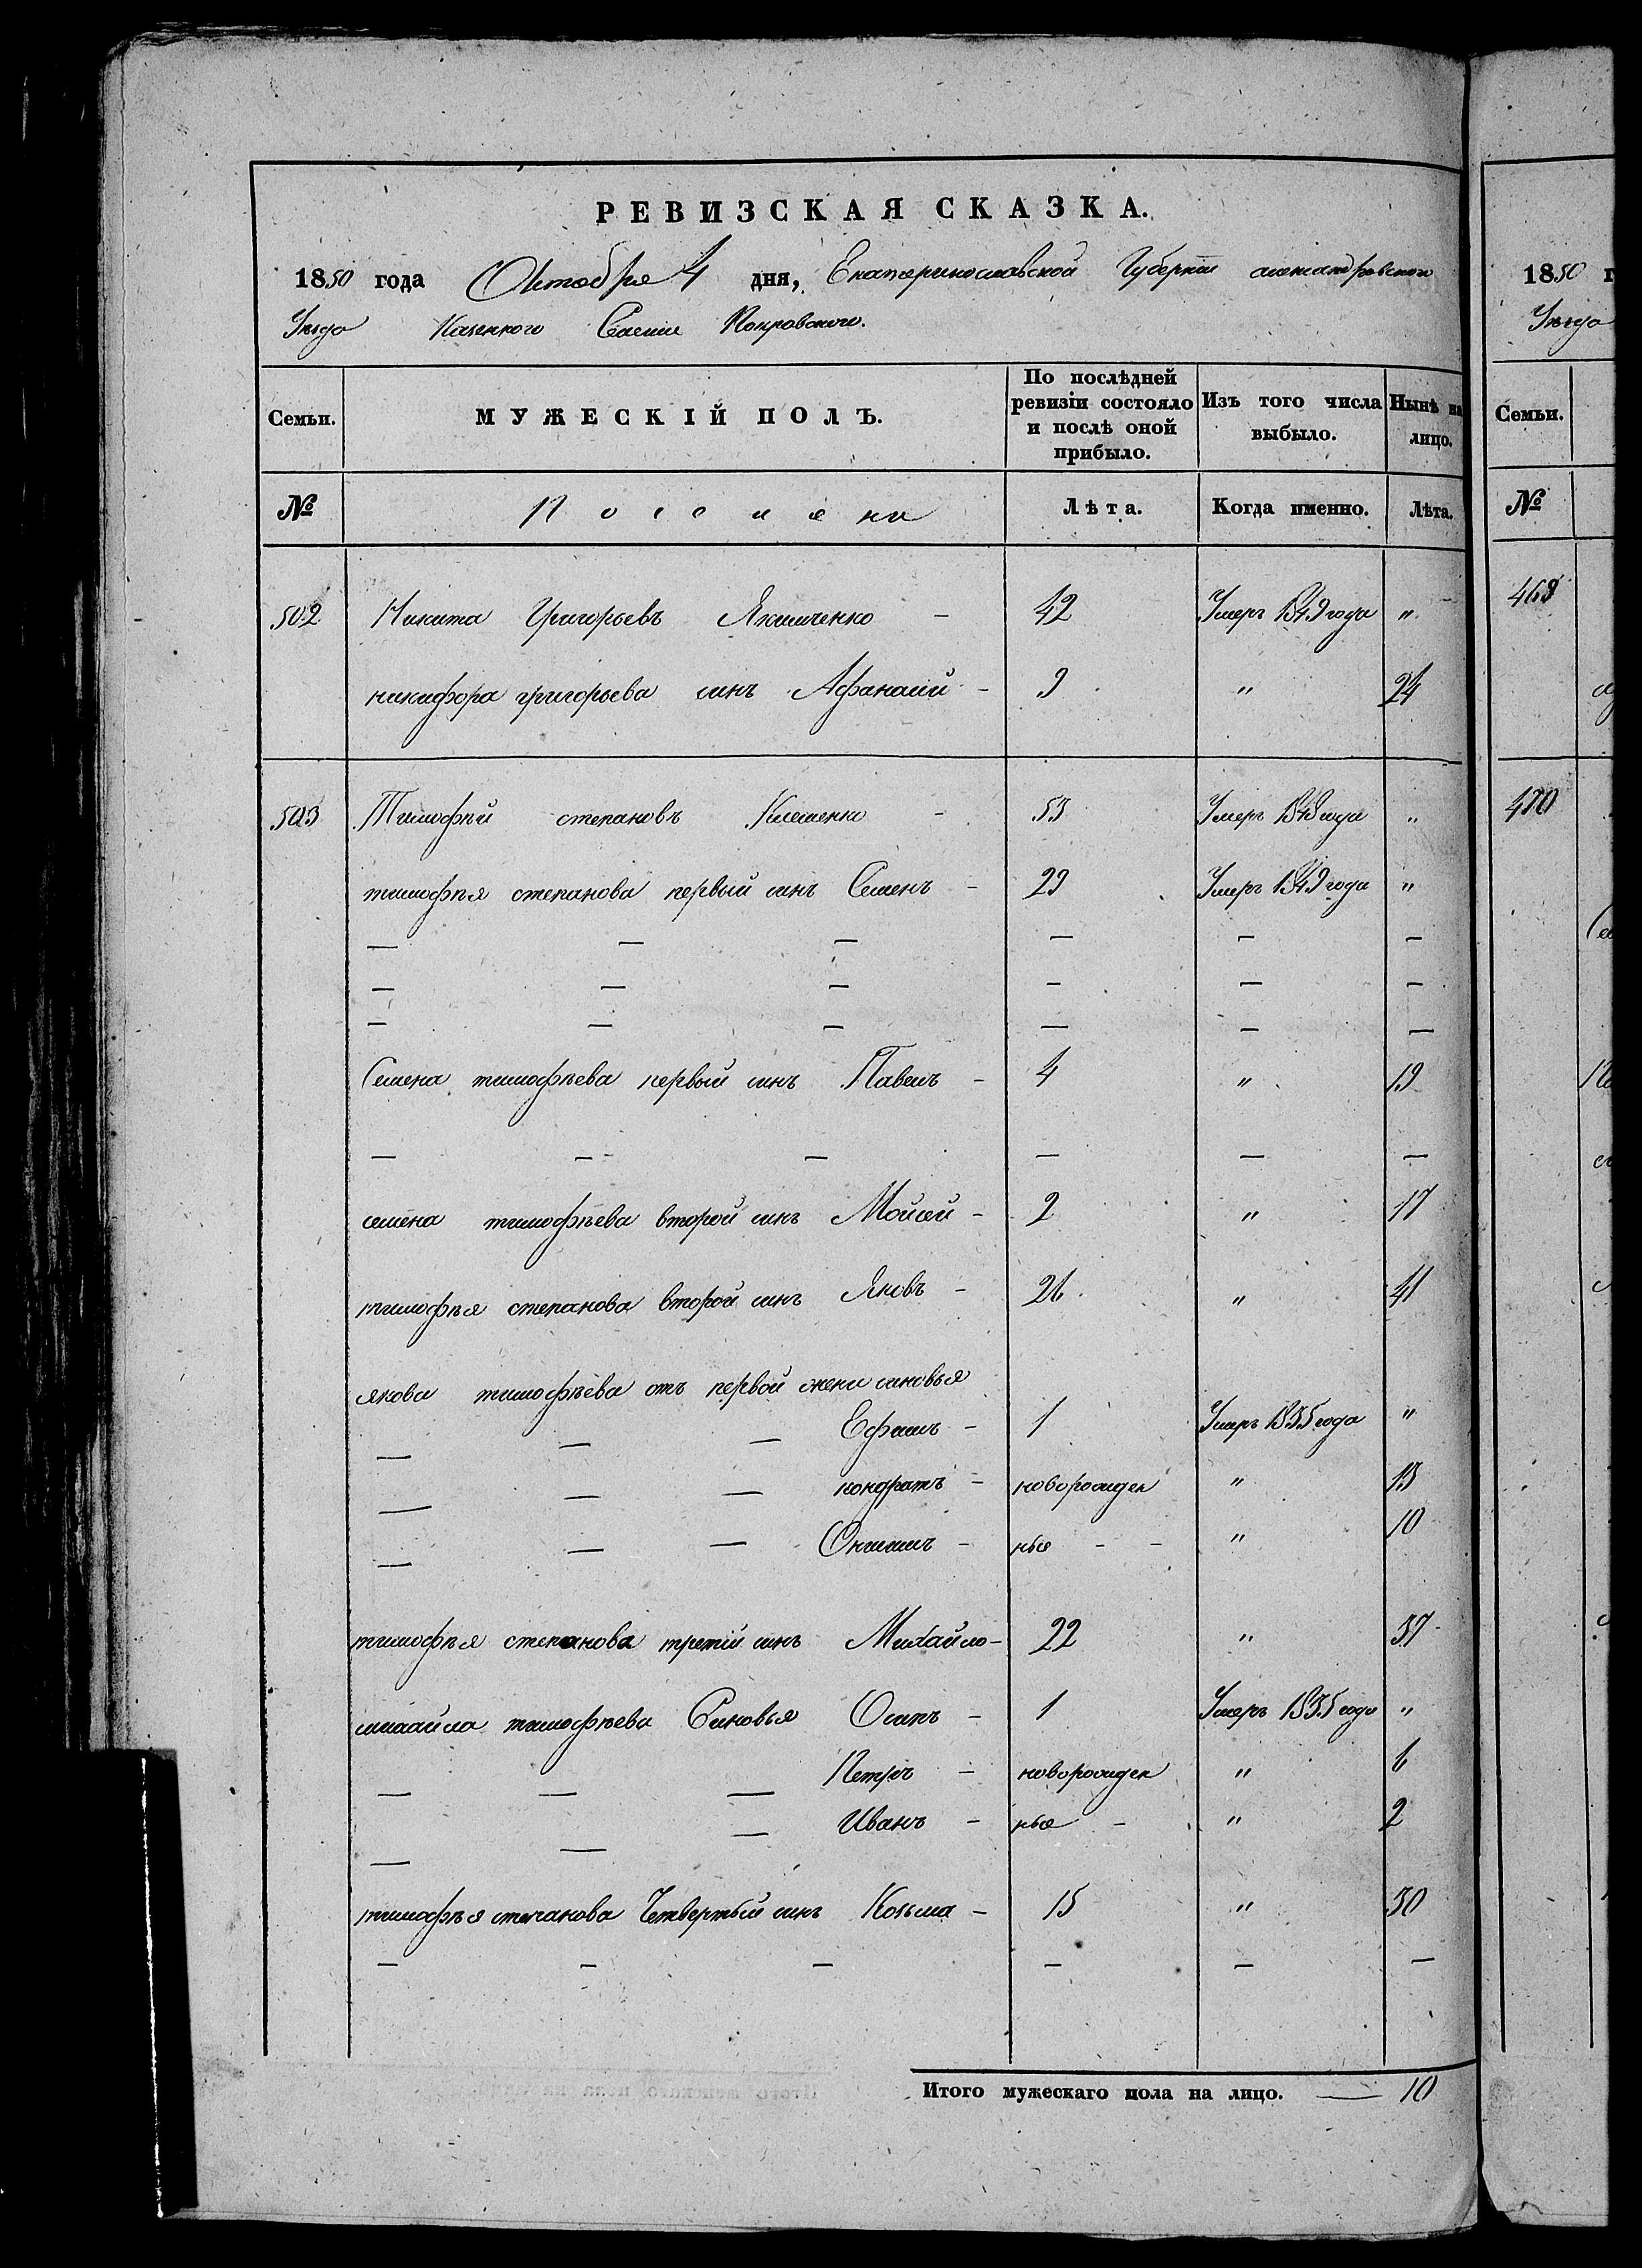 РЕВИЗСКАЯ СКАЗКА.
1850 года Октобря 4 дня, Екатеринославской Губерніи александровского
Уезда Казенного Селенія Покровского.
Семьи. МУЖЕСКІЙ ПОЛЪ. По послѣдней ревизіи состояло и послѣ оной прибыло. Изъ того числа выбыло. Нынѣ на лицо.
№ Поселяни Лѣта. Когда именно. Лѣта.
502 Никита Григорьевъ Якимченко - 42 Умеръ 1849 года "
никифора григорьева синъ Афанасій - 9 " 24
503 Тимофѣй степановъ Клеменко - 53 Умеръ 1848 года "
тимофѣя степанова первый синъ Семенъ - 29 Умеръ 1849 года "
— — — — — —
— — — — — —
— — — — — —
Семена тимофѣева первый синъ Павелъ - 4 " 19
— — — — — —
семена тимофѣева второй синъ Мойсей - 2 " 17
тимофѣя степанова второй синъ Яковъ - 26 " 41
якова тимофѣева отъ первой жени синовья
— — — Ефимъ - 1 Умеръ 1835 года "
— — — кондратъ - новорожден " 13
— — — Онисимъ - ные - - " 10
тимофѣя степанова третій синъ Михайло - 22 " 37
михайла тимофѣева Синовья Осипъ - 1 Умеръ 1835 года "
— — — Петръ - новорожден " 6
— — — Иванъ - ные - " 2
тимофѣя степанова Четвертый синъ Козьма - 15 " 30
— — — — — —
Итого мужескаго пола на лицо. — 10
1850 г
Уезда
Семьи.
№
469
470